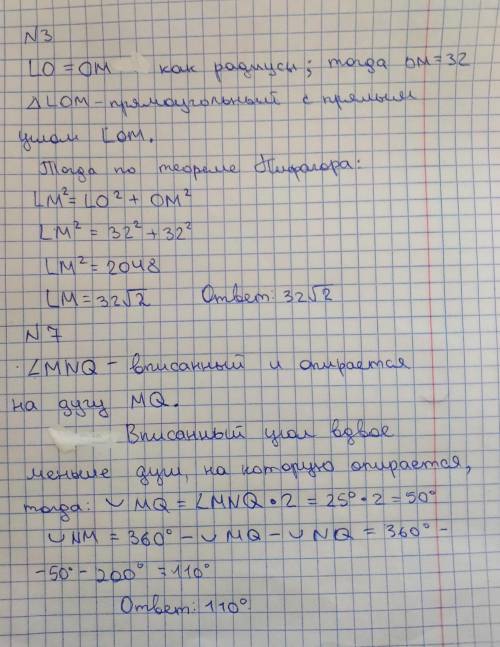 N3
LO = OM как радиусы; тогда OM = 32
△LOM - прямоугольный с прямым
углом LOM.
Тогда по теореме Пифагора:
LM² = LO² + OM²
LM² = 32² + 32²
LM² = 2048
LM = 32√2 Ответ: 32√2
N 7
∠MNQ - вписанный и опирается
на дугу MQ.
Вписанный угол вдвое
меньше дуги, на которую опирается,
тогда: ◡MQ = ∠MNQ • 2 = 25° • 2 = 50°
◡NM = 360° - ◡MQ - ◡NQ = 360° -
- 50° - 200° = 110°
Ответ: 110°